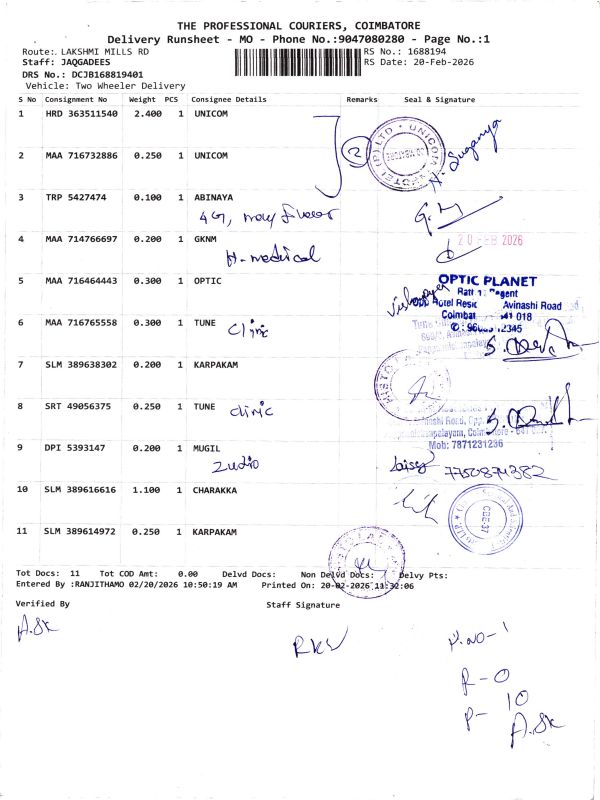 THE PROFESSIONAL COURIERS, COIMBATORE
Delivery Runsheet - MO - Phone No.:9047080280 - Page No.:1
Route: LAKSHMI MILLS RD
RS No.: 1688194
Staff: JAQGADEES
RS Date: 20-Feb-2026
DRS No.: DCJB168819401
Vehicle: Two Wheeler Delivery
S No Consignment No Weight PCS Consignee Details Remarks Seal & Signature
1 HRD 363511540 2.400 1 UNICOM
2
2 MAA 716732886 0.250 1 UNICOM
3 TRP 5427474 0.100 1 ABINAYA
4 MAA 714766697 0.200 1 GKNM
20 FEB 2026
H-medical
5 MAA 716464443 0.300 1 OPTIC
OPTIC PLANET
Avinashi Road
6 MAA 716765558 0.300 1 TUNE
Clinic
7 SLM 389638302 0.200 1 KARPAKAM
8 SRT 49056375 0.250 1 TUNE
clinic
Mob: 7871231236
9 DPI 5393147 0.200 1 MUGIL
Zudio
10 SLM 389616616 1.100 1 CHARAKKA
11 SLM 389614972 0.250 1 KARPAKAM
Tot Docs: 11 Tot COD Amt: 0.00 Delvd Docs: Non Delvd Docs: Delvy Pts:
Entered By :RANJITHAMO 02/20/2026 10:50:19 AM Printed On: 20-02-2026 11:32:06
Verified By
Staff Signature
R - 0
P - 10